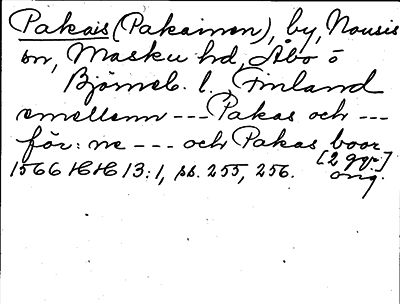 Pakais (Pakainen), by, Nousis
sn, Masku hd, Åbo o
Björneb. l. Finland
emellenn --- Pakas och ---
för: ne --- och Pakas boor
[2 ggr]
1566 HH 13:1, ss. 255, 256. orig.